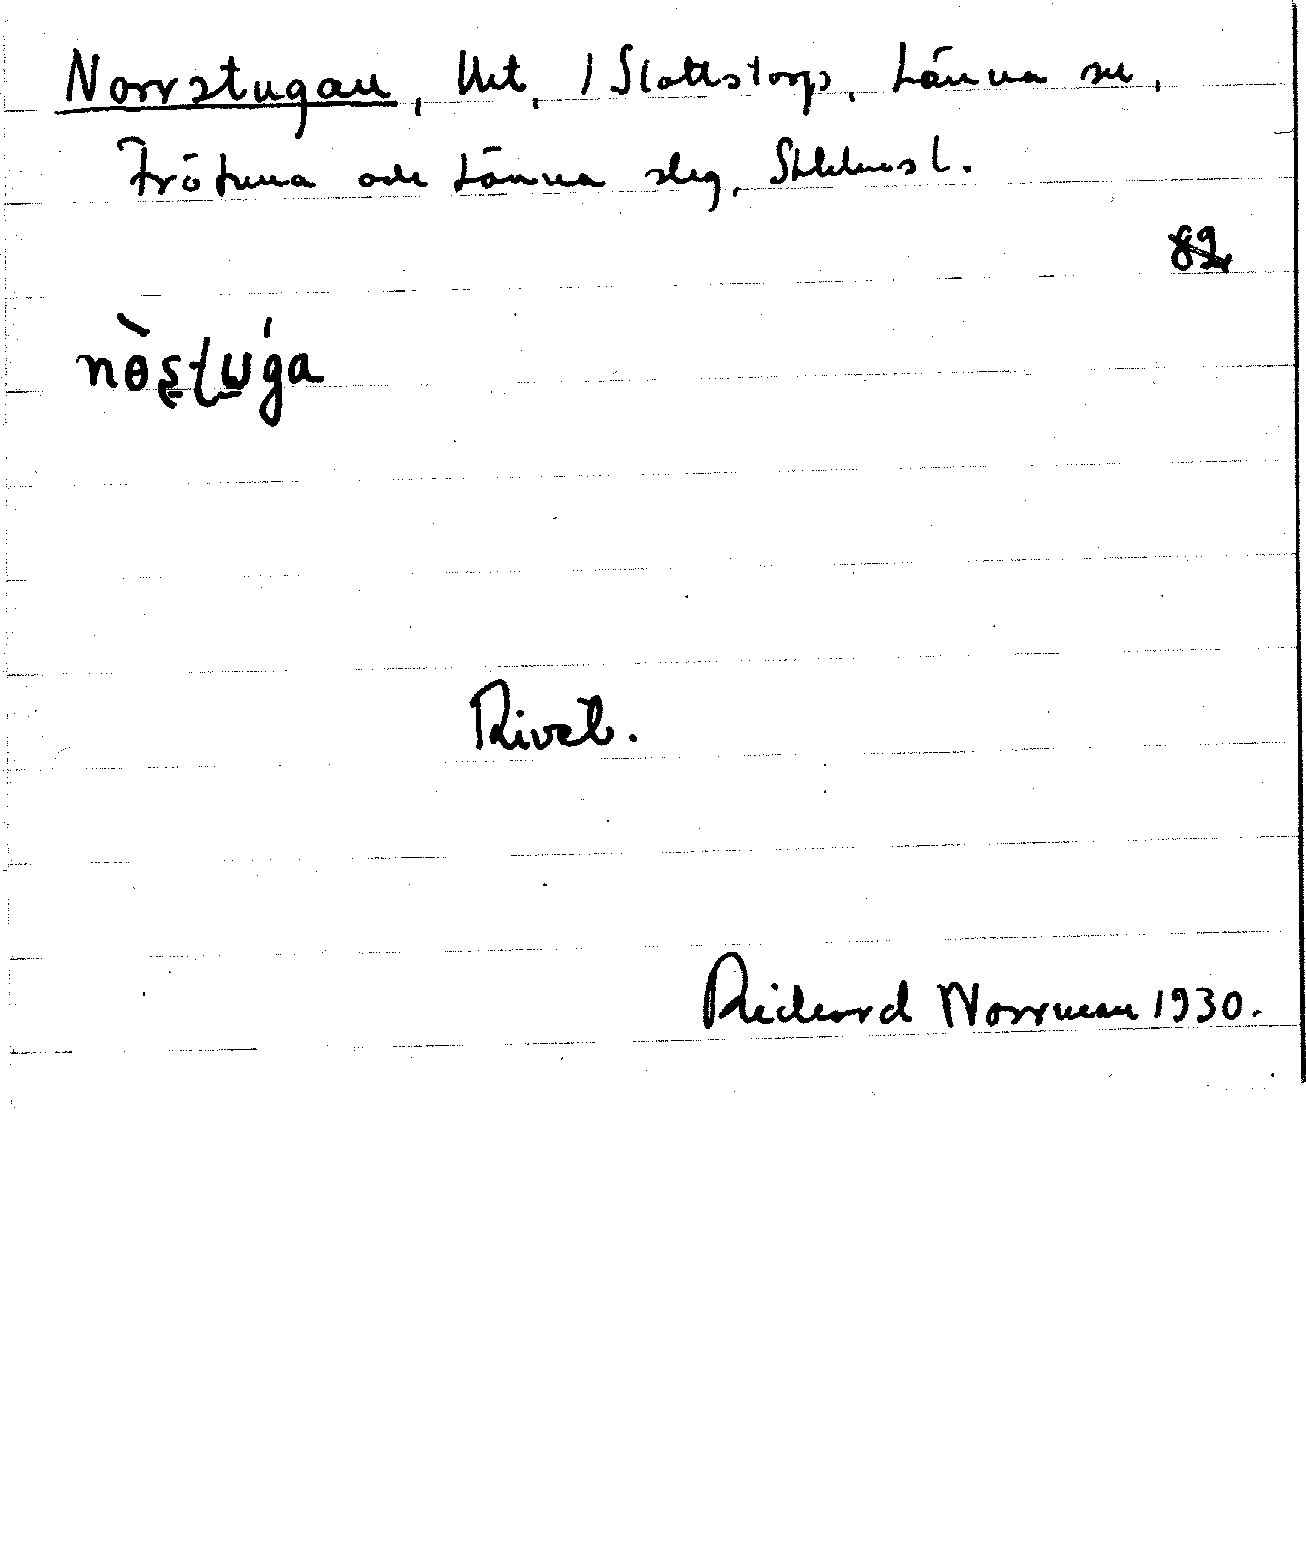 Norrstugan, lht, / Slottstorp, Länna sn,
Frötuna och Länna slg, Sthlms l.
82
nòs̠tu̠ǵa
Rivet.
Richard Norrman 1930.